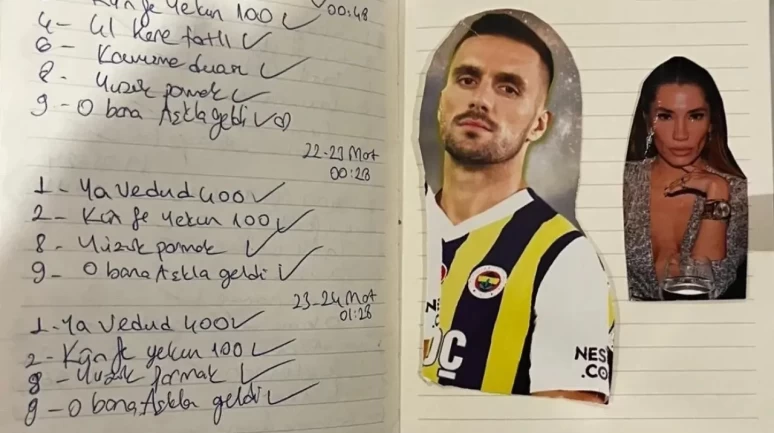 Kün fe yekün 100 ✓
00:48
4- Ul Kere fatlı ✓
6- Kavuşma duası ✓
8- Yüzük parmak ✓
9- O bana Aşkla geldi ✓
22-23 Mart
00:28
1- Ya Vedud 400 ✓
2- Kün fe yekün 100 ✓
8- Yüzük parmak ✓
9- O bana Aşkla geldi ✓
23-24 Mart
01:28
1- Ya Vedud 400 ✓
2- Kün fe yekün 100 ✓
8- Yüzük parmak ✓
9- O bana Aşkla geldi ✓
NES
.CO